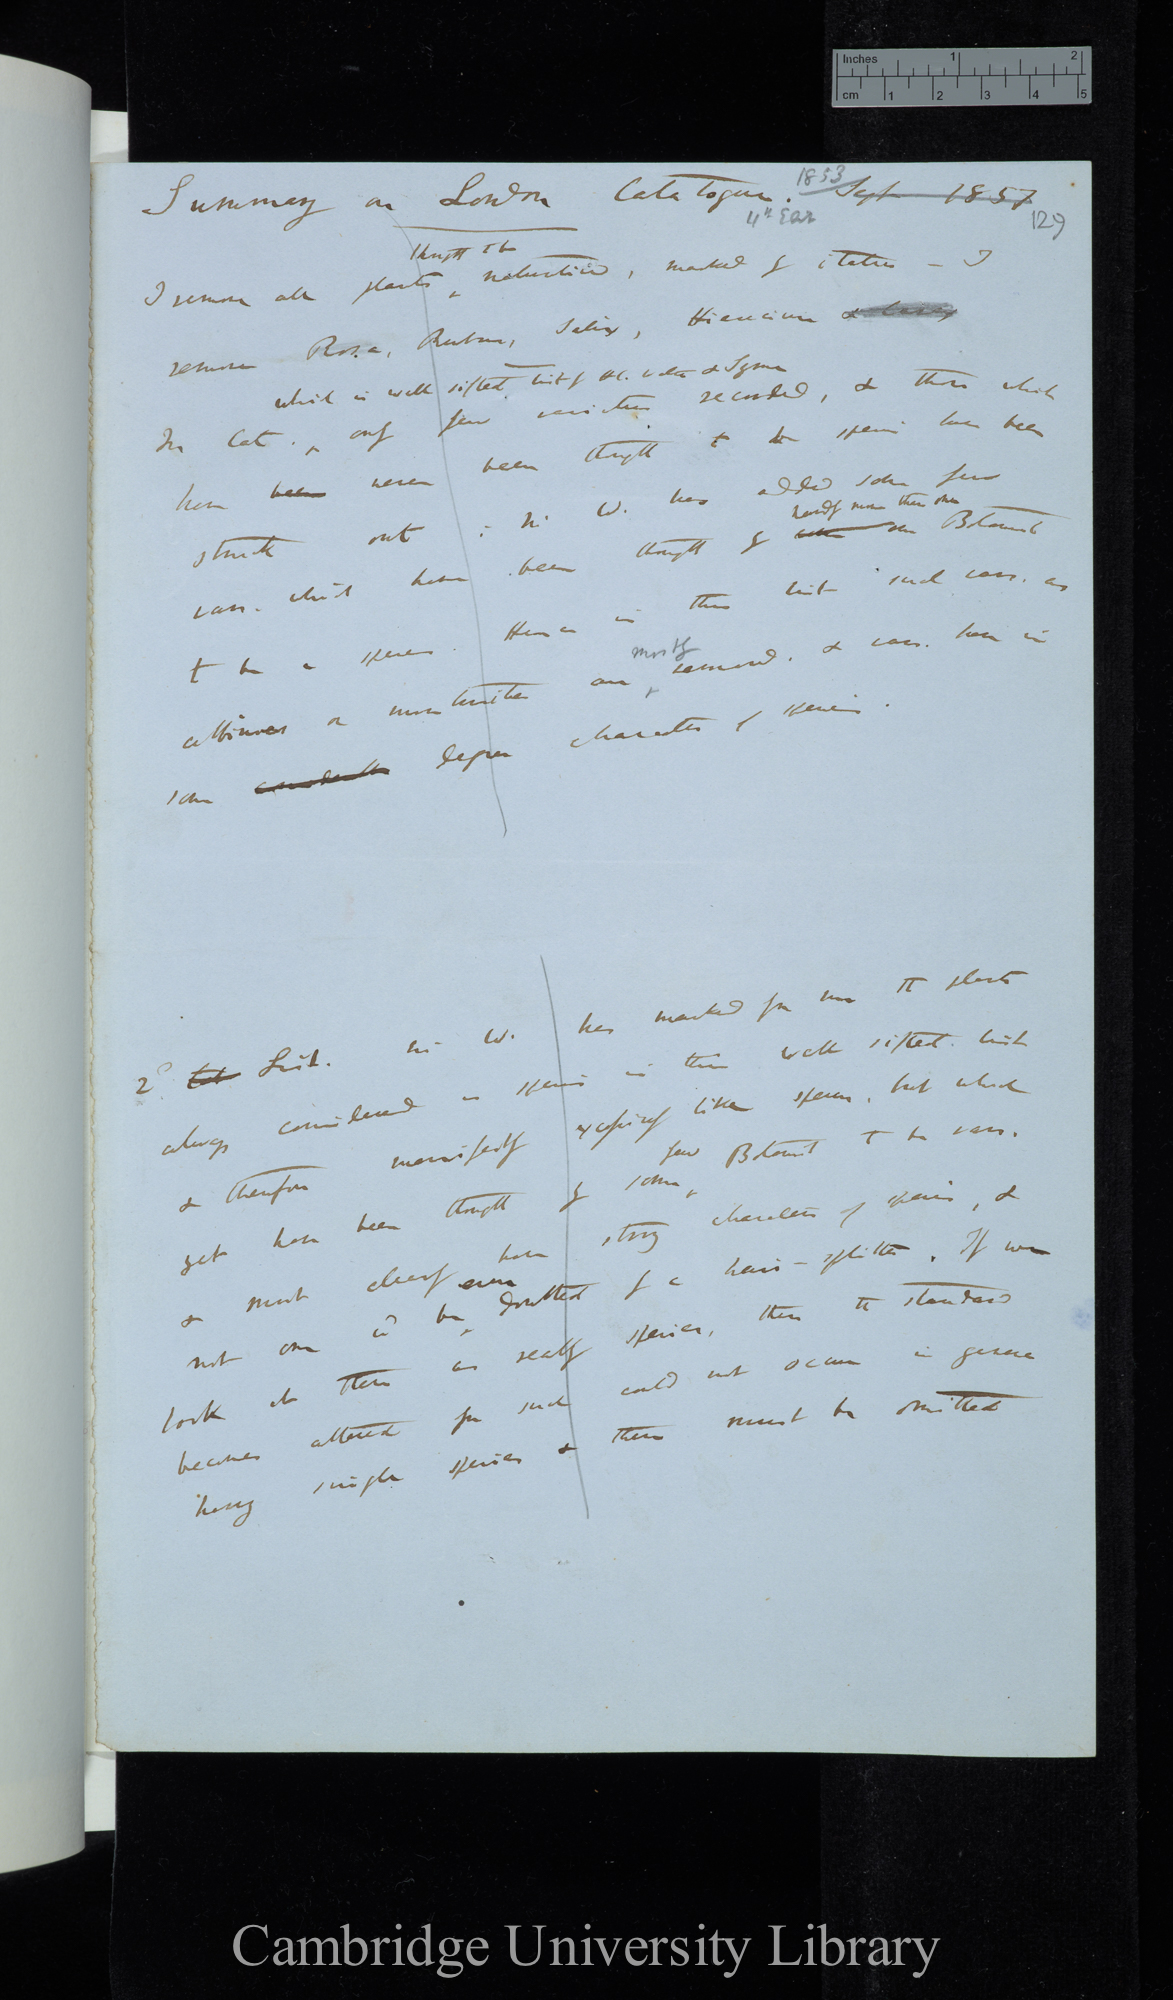 Inches 1 2
cm 1 2 3 4 5
Summary on London Catalogue. 1853 Sept 1857
4th Edit 129
thought to be
I remove all plants naturalised, marked by italics — I
remove Rosa, Rubus, Salix, Hieracium &
which is well sifted list of
In Cat. only few varieties recorded, & those which
have been never been thought to be species have been
struck out : Mr W. has added some few
hardly more than one
vars. which have been thought by Botanist
to be a species. Hence in this list such vars. as
mostly
albinos or monstrosities are removed. & vars. have in
some considerable degree character of species.
2d Cat List. Mr W. has marked for me the plants
always considered as species in this well sifted list
& therefore manifestly expressly like species, but which
few
yet have been thought by some Botanist to be vars.
& most clearly have strong characters of species, &
even
not one wd be doubted by a hair-splitter. If we
look at them as really species, then the standard
becomes altered for such could not occur in genera
having single species & these must be omitted
Cambridge University Library